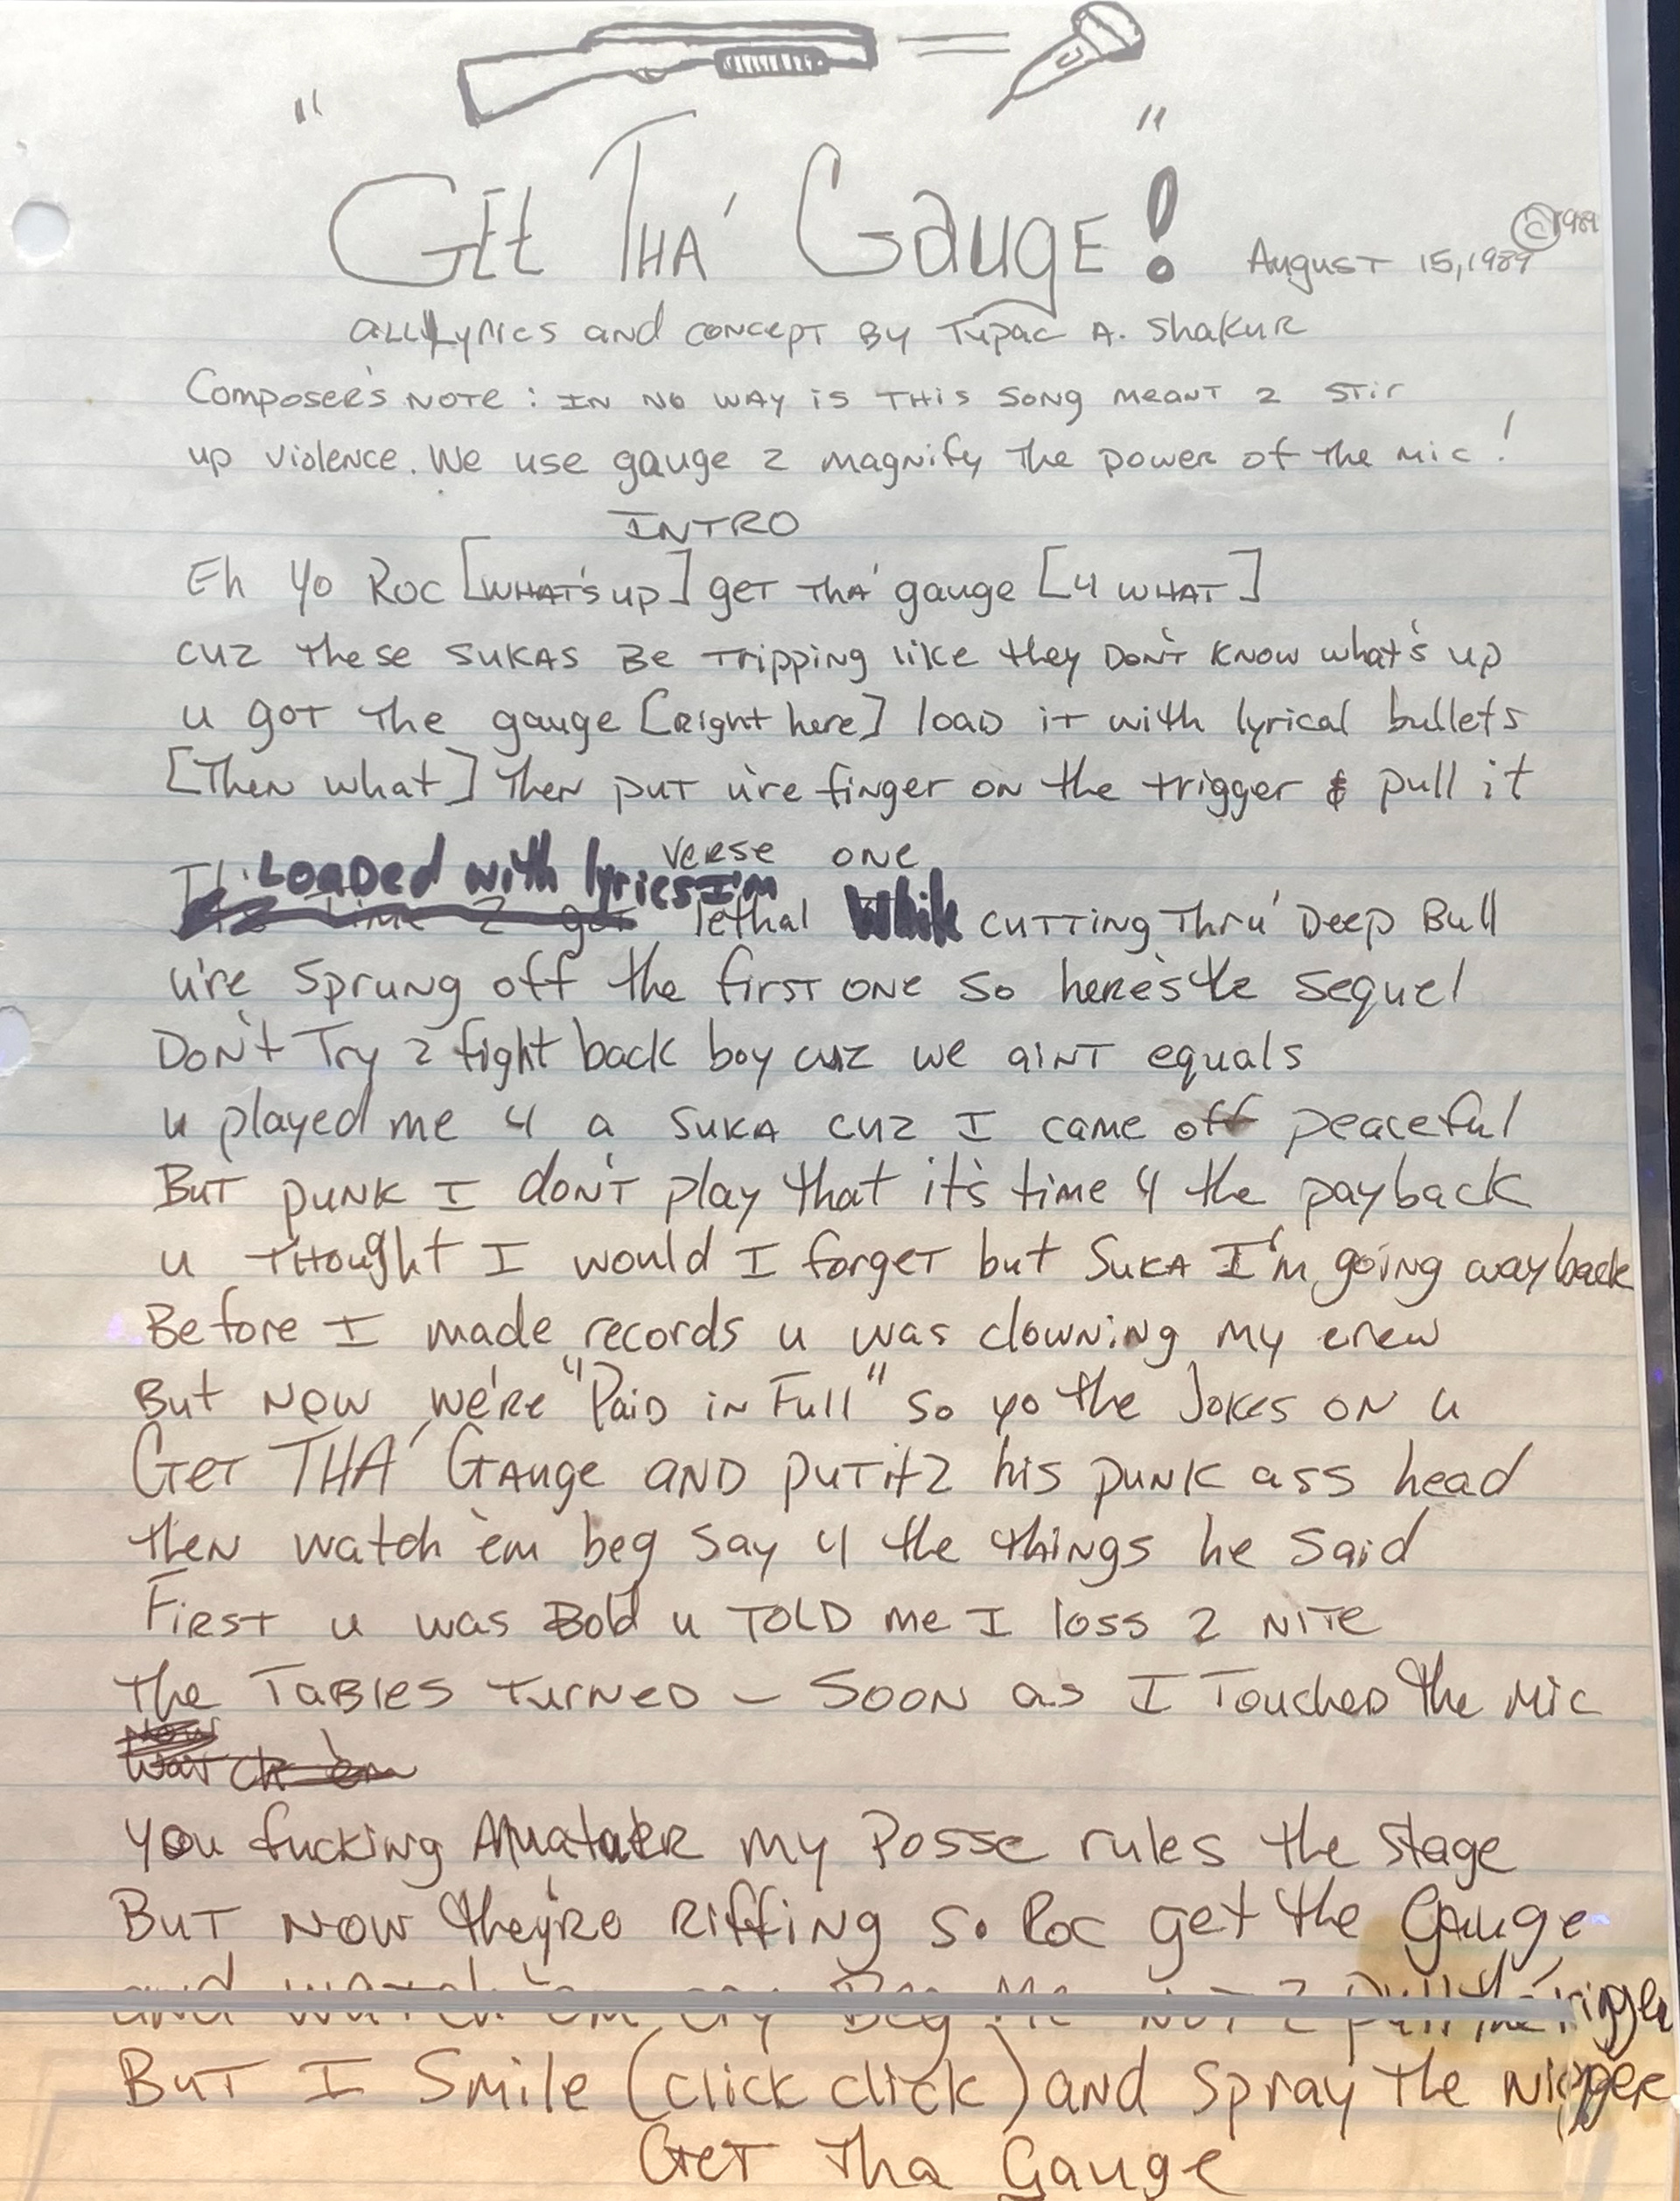 "Get Tha' Gauge!"
August 15, 1989 © 1989
all Lyrics and concept By Tupac A. Shakur
Composer's Note : In no way is this song meant 2 stir
up violence. We use gauge 2 magnify the power of the mic!
INTRO
Eh Yo Roc [what's up] get tha' gauge [4 what]
cuz these sukas be tripping like they don't know what's up
u got the gauge [right here] load it with lyrical bullets
[Then what] then put u're finger on the trigger & pull it
verse one
Loaded with lyrics I'm lethal While cutting thru' Deep Bull
u're sprung off the first one so here's the sequel
Don't Try 2 fight back boy cuz we ain't equals
u played me 4 a suka cuz I came off peaceful
But punk I don't play that it's time 4 the payback
u thought I would I forget but Suka I'm going way back
Before I made records u was clowning my crew
But now we're "Paid in Full" so yo the Jokes on u
Get THA' Gauge and put it 2 his punk ass head
then watch 'em beg say 4 the things he said
First u was Bold u told me I loss 2 nite
the Tables turned - Soon as I Touched the Mic
Now
Watch 'em
You fucking Amatuer my Posse rules the stage
But now they're Riffing so Roc get the Gauge
and watch 'em cry Beg Me not 2 pull the trigger
But I Smile (click click) and spray the nigger
Get Tha Gauge